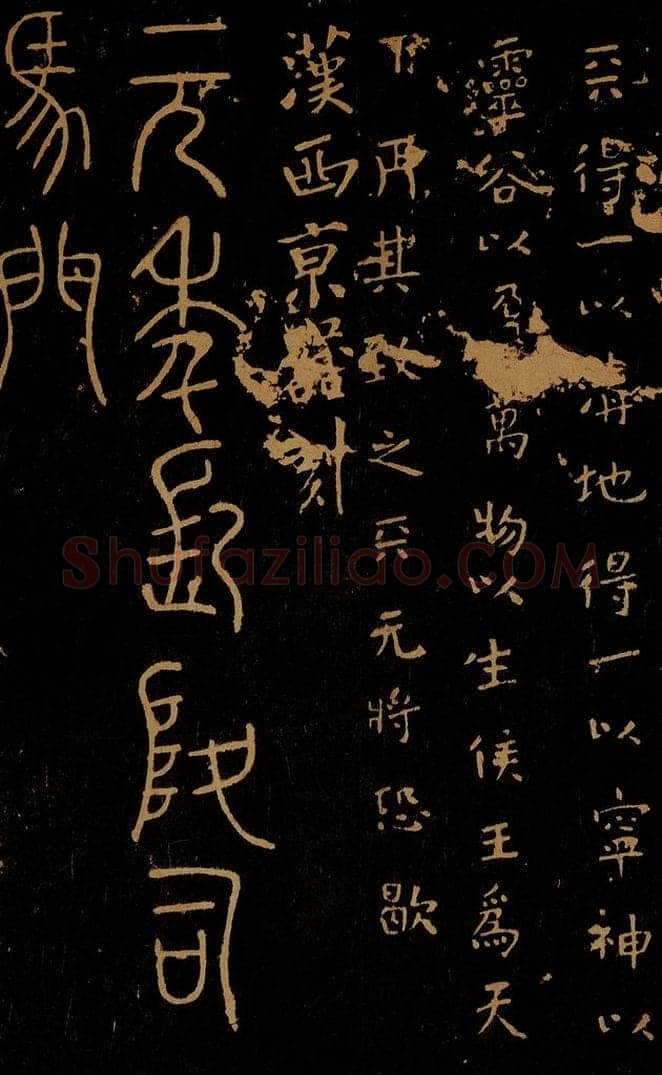 兲得一以地得一以寧神以
靈谷以萬物以生侯王爲天
下其致之兲元將恐歇
漢西京器刻
元年司
馬門
Shufaziliao.COM